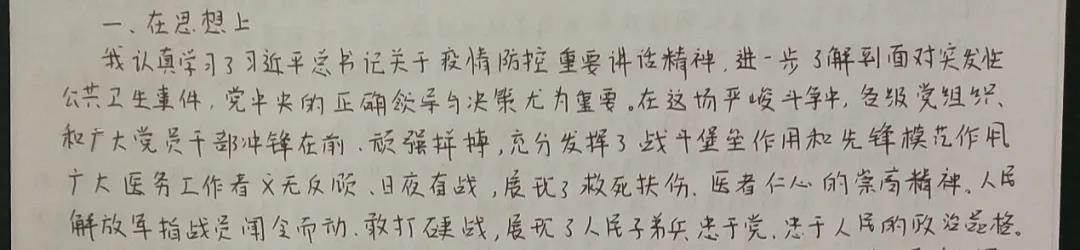 一、在思想上
我认真学习了习近平总书记关于疫情防控重要讲话精神,进一步了解到面对突发性
公共卫生事件,党中央的正确领导与决策尤为重要。在这场严峻斗争中,各级党组织、
和广大党员干部冲锋在前、顽强拼搏,充分发挥了战斗堡垒作用和先锋模范作用
广大医务工作者义无反顾、日夜奋战,展现了救死扶伤、医者仁心的崇高精神。人民
解放军指战员闻令而动、敢打硬战,展现了人民子弟兵忠于党、忠于人民的政治品格。